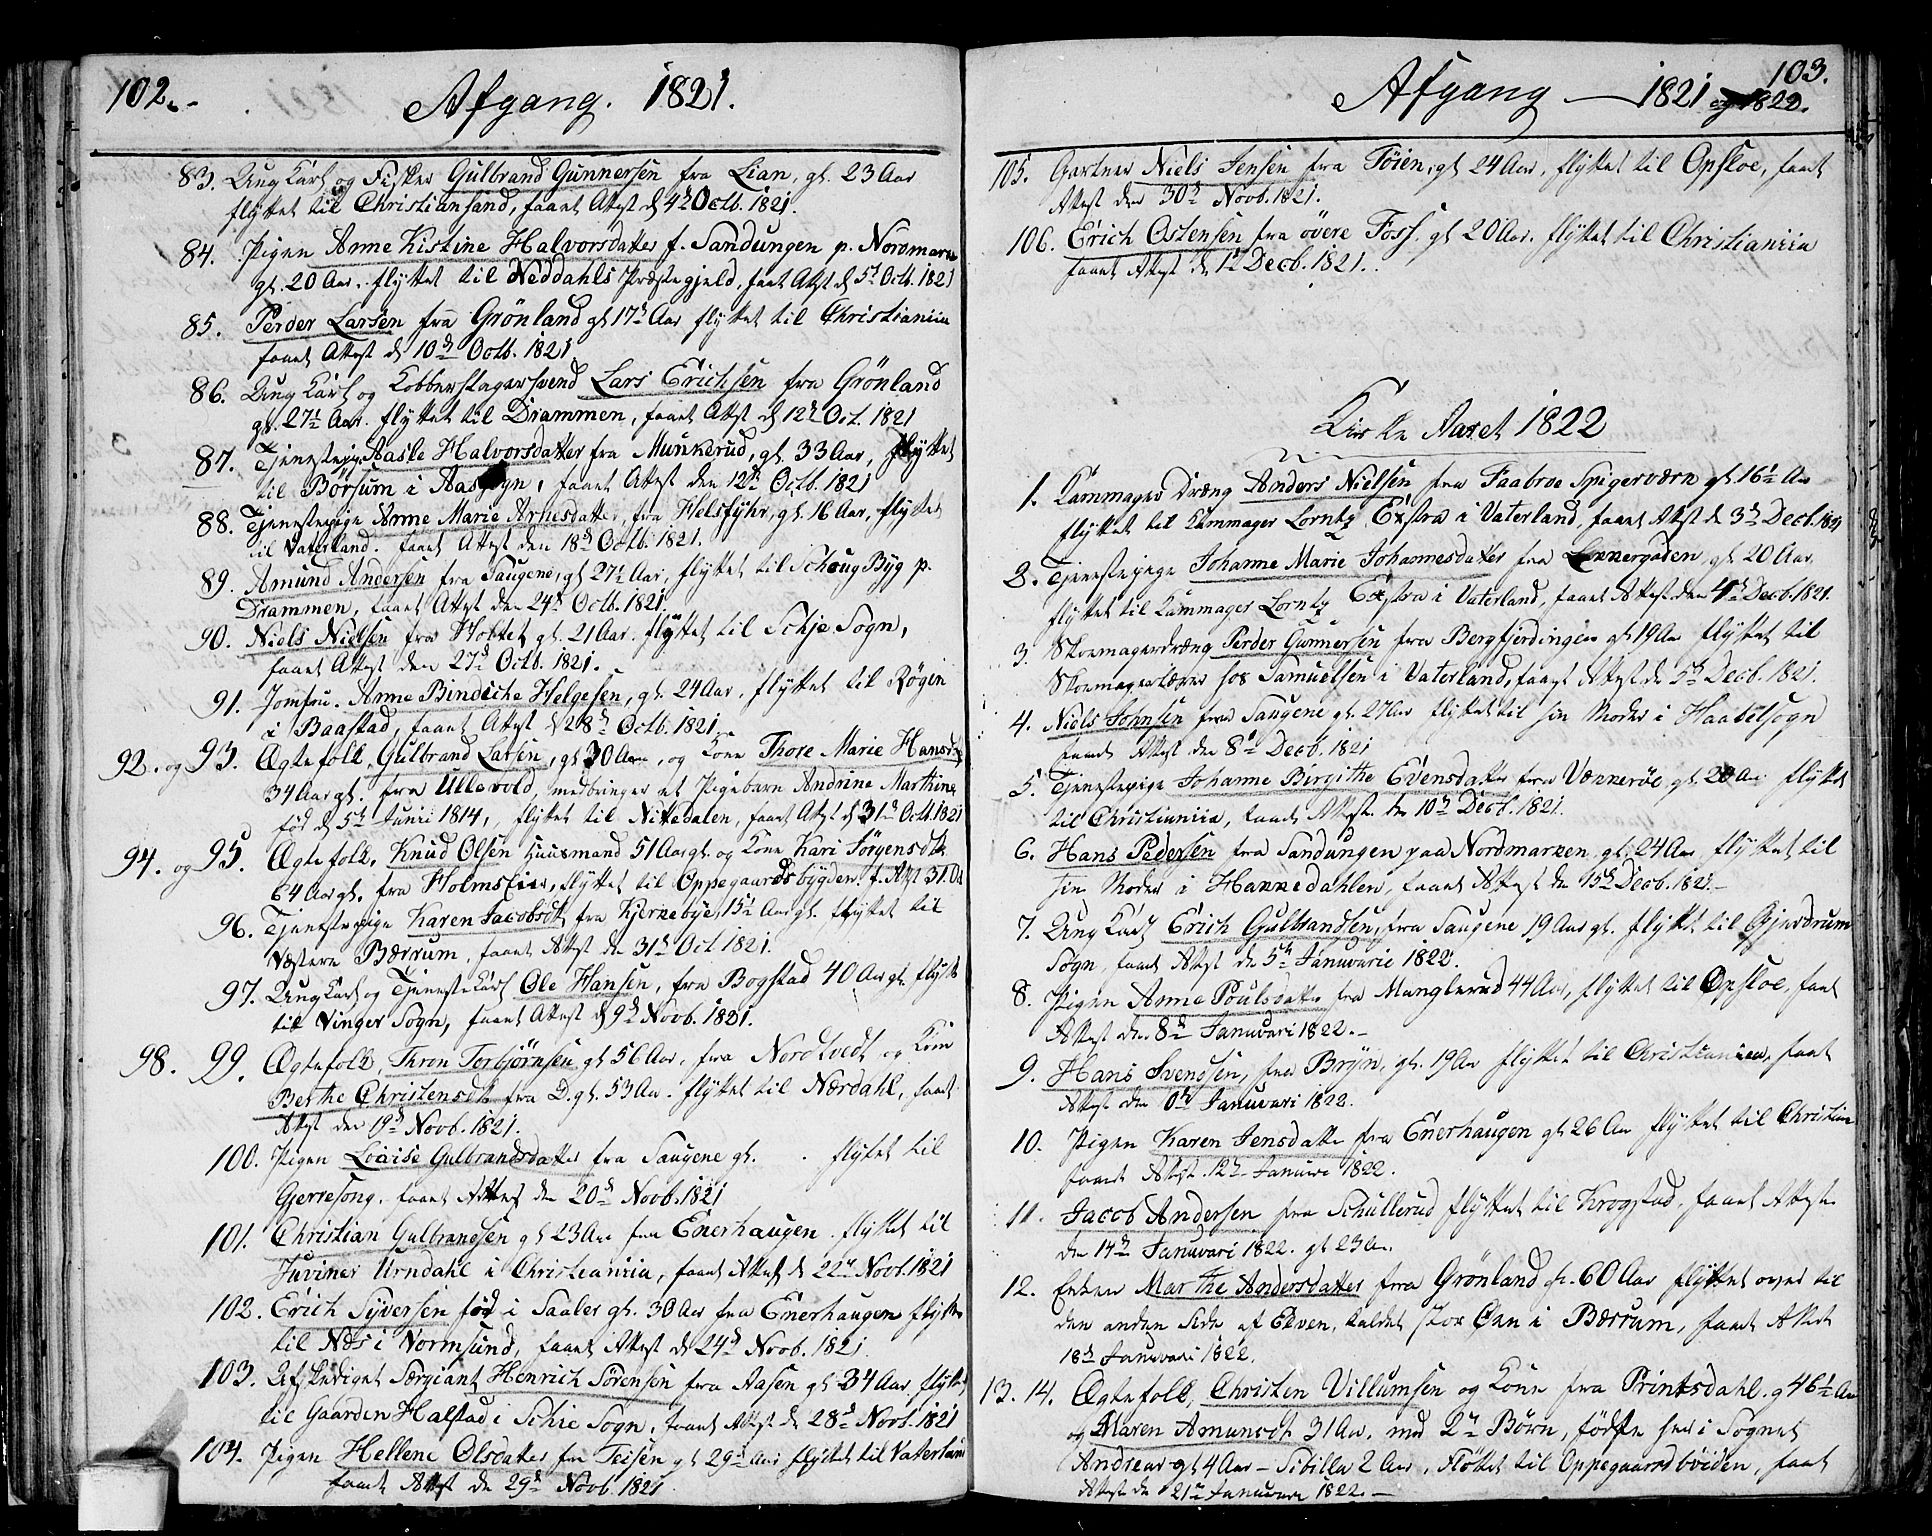 102.
Afgang. 1821.
83. Ung Karl og Fisker Gulbrand Gunnersen fra Lian, gl. 23 Aar
flyttet til Christiansand, faaet Attest d 4d Octb. 1821.
84. Pigen Anne Kistine Halvorsdatter f. Sandungen p. Nordmarn
gl. 20 Aar. flyttet til Neddahls Præstegjeld, faaet Attst d 5t Octb. 1821
85. Perder Larsen fra Grönland gl 17 Aar flyttet til Christiania
faaet Attest d 10d Octb. 1821
86. Ung Karl og Kobberslagersvend Lars Erichsen fra Grönland
gl. 27½ Aar. flyttet til Drammen, faaet Attst d 12d Oct. 1821
87. Tjenestepige Aasle Halvorsdatter fra Munkerud, gl. 33 Aar, flyttet
til Börsum i Aas Sogn, faaet Attest den 12d Octb. 1821
88. Tjenestepige Anne Marie Arnesdatter, fra Helsfyhr, gl. 16 Aar, flyttet
til Vaterland. faaet Attest den 18d Octb. 1821.
89. Amund Andersen fra Saugene, gl 27½ Aar, flyttet til Schoug Byg p.
Drammen, faaet Attest den 24d Octb. 1821.
90. Niels Nielsen fra Holtet gl. 21 Aar. flyttet til Schje Sogn,
faaet Attest den 27d Octb. 1821.
91. Jomfru. Anne Bindiche Helgesen, gl. 24 Aar, flyttet til Røgin
i Baastad, faaet Attest d 28d Octb. 1821
92. og 93. Ægtefolk, Gulbrand Larsen, gl 30 Aar, og Kone Thore Marie Hansdt
34 Aar gl. fra Ullevold, medbringer et Pigebarn Andrine Marthine
fød d 5t Junii 1814, flyttet til Nittedalen, faaet Attst d 31d Octb. 1821
94. og 95. Ægtefolk, Knud Olsen Huusmand 51 Aar gl. og Kone Kari Sørgensdt
64 Aar gl. fra Holmslie, flyttet til Oppegaards bygden. f. Attst 31 Oct
96. Tjenestepige Karen Jacobsdt fra Kjernebye, 15½ Aar gl. flyttet til
Vestern Bærrum, faaet Attest de 31d Oct 1821.
97. Ung Karl og Tjenestekarl Ole Hansen, fra Bogstad 40 Aar gl. flytt
til Vinger Sogn, faaet Attest d 9d Novb. 1821.
98. 99. Ægtefolk, Thron Torbjørnsen gl 56 Aar, fra Nordtvedt og Kone
Berthe Christensdt fra D. gl. 53 Aar. flyttet til Nærdahl, faaet
Attst den 19d Novb. 1821.
100. Pigen Lovise Gulbrandsdatter fra Saugene gl. . flyttet til
Gjerresong, faaet Attest den 20d Novb. 1821
101. Christian Gulbrandsen gl 23 Aar fra Enerhaugen. flyttet til
Juviner Urndahl i Christiania, faaet Attest d 22d Novb. 1821
102. Erich Syversen fød i Saaler gl. 30 Aar fra Enerhaugen flytte
til Næs i Vormsund, faaet Attest d 24d Novb. 1821.
103. Afskediget Særgiant Henrich Sörensen fra Aasen gl 34 Aar flyttet
til Gaarden Halstad i Schie Sogn, faaet Attest d 28d Novb. 1821
104. Pigen Hellene Olsdatter fra Teisen gl 29 Aar flyttet til Vaterland
faaet Attest de 29d Novb. 1821
103.
Afgang — 1821 og 1822.
105. Gartner Niels Jensen fra Föien, gl 24 Aar, flyttet til Opsloe, faaet
Attest den 30d Novb. 1821.
106. Erich Ostensen fra övere Foss. gl 20 Aar. flyttet til Christiania
faaet Attest d 1d Decb. 1821.
Kirke Aaret 1822
1. Kammager Dræng Anders Nielsen fra Faabroe Spigerværn gl 16½ Aar
flyttet til Kammager Lorntz Extra i Vaterland, faaet Attest d 3d Decb. 1821
2. Tjenestepige Johanne Marie Johannesdatter fra Lonnergaden, gl 20 Aar,
flyttet til Kammager Lorntz Extra i Vaterland, faaet Attest den 4d Decb. 1821.
3. Skomagerdræng Perder Gunnersen fra Bergfjerdingen gl 19 Aar flyttet til
Skomagerlærer hos Samuelsen i Vaterland, faaet Attest de 5d Decb. 1821.
4. Niels Johnsen fra Saugene gl. 27 Aar flyttet til sin Moder i Haabelsogn
faaet Attest den 8d Decb. 1821
5. Tjenestepige Johanne Birgithe Evensdatter fra Vækkeröe gl 20 Aar flyttet
til Christiania, faaet Attest den 10d Decb. 1821.
6. Hans Pedersen fra Sandungen paa Nordmarken, gl. 24 Aar flyttet til
sin Moder i Hakkedahlen, faaet Attest den 15d Decb. 1821.
7. Ung Karl Erich Gulbrandsen, fra Saugene 19 Aar gl. flyttet til Gjerdrum
Sogn, faaet Attest de 5d Januarie 1822.
8. Pigen Anne Poulsdatter fra Manglerud 44 Aar, flyttet til Opsloe, faaet
Attest den 8d Januari 1822.
9. Hans Svendsen, fra Bryn, gl. 19 Aar flyttet til Christiania, faaet
Attest den Januari 1822.
10. Pigen Karen Jensdatter fra Enerhaugen gl 26 Aar flyttet til Christian
faaet Attest. 12d Januari 1822.
11. Jacob Andersen fra Schullerud flyttet til Krogstad, faaet Attest
den 14d Januari 1822. gl 23 Aar.
12. Enken Marthe Andersdatter fra Grönland gl. 60 Aar flyttet over til
den anden Side af Elven, kaldet Stor Öen i Bærrum, faaet Attest
18d Januari 1822.
13. 14. Ægtefolk, Christen Villumsen og Kone fra Printsdahl. g 46½ Aar
og Maren Amunsdt 31 Aar, med 2 Börn, födte her i Sognet
Andreas gl 4 Aar – Sibilla 2 Aar, fløttet til Oppegaardsböiden, faaet
Attest de 21d Januari 1822.